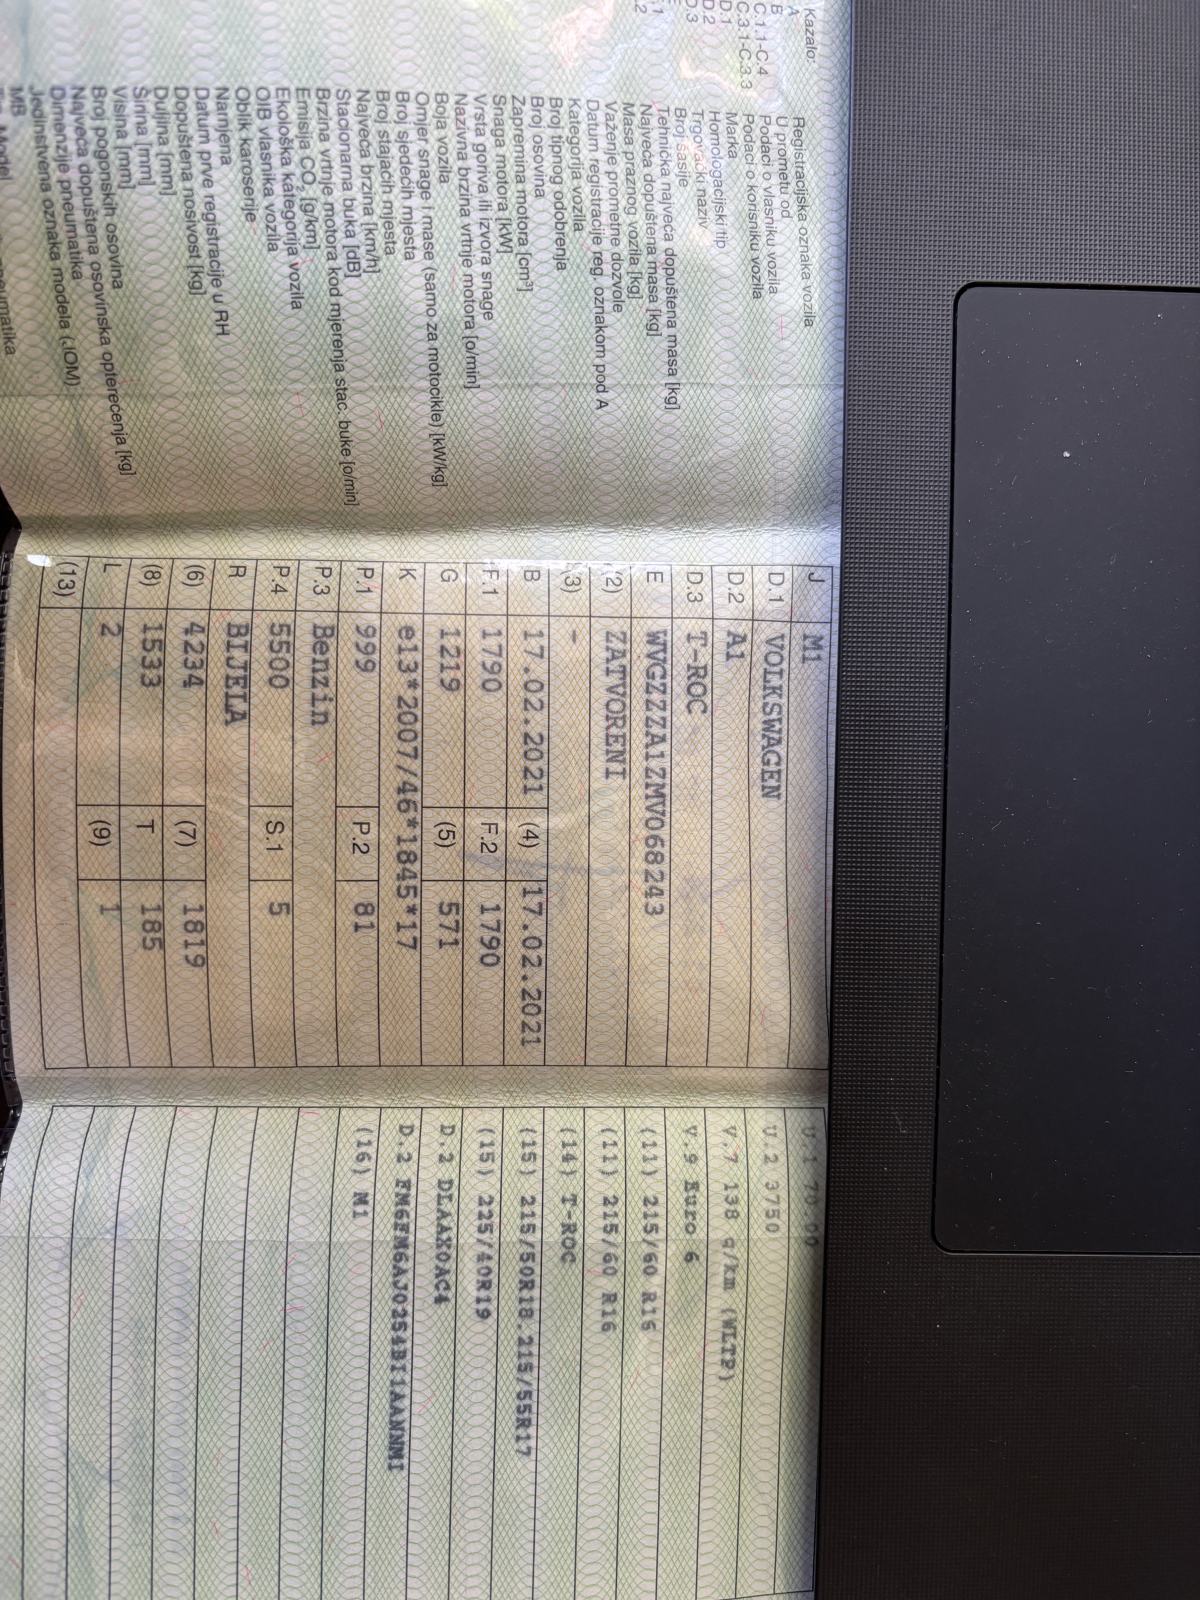 Kazalo:
A Registracijska oznaka vozila
B U prometu od
C.1.1-C.4 Podaci o vlasniku vozila
C.3.1-C.3.3 Podaci o korisniku vozila
D.1 Marka
D.2 Homologacijski tip
D.3 Trgovački naziv
Broj šasije
Tehnička najveća dopuštena masa [kg]
Najveća dopuštena masa [kg]
Masa praznog vozila [kg]
Važenje prometne dozvole
Datum registracije reg. oznakom pod A
Kategorija vozila
Broj tipnog odobrenja
Broj osovina
Zapremina motora [cm³]
Snaga motora [kW]
Vrsta goriva ili izvora snage
Nazivna brzina vrtnje motora [o/min]
Boja vozila
Omjer snage i mase (samo za motocikle) [kW/kg]
Broj sjedećih mjesta
Broj stajaćih mjesta
Najveća brzina [km/h]
Stacionarna buka [dB]
Brzina vrtnje motora kod mjerenja stac. buke [o/min]
Emisija CO₂ [g/km]
Ekološka kategorija vozila
OIB vlasnika vozila
Oblik karoserije
Namjena
Datum prve registracije u RH
Dopuštena nosivost [kg]
Duljina [mm]
Širina [mm]
Visina [mm]
Broj pogonskih osovina
Najveća dopuštena osovinska opterećenja [kg]
Dimenzije pneumatika
Jedinstvena oznaka modela (JOM)
MB
Model
J M1
D.1 VOLKSWAGEN
D.2 A1
D.3 T-ROC
E WVGZZZA1ZMV068243
(2) ZATVORENI
(3) -
B 17.02.2021 (4) 17.02.2021
F.1 1790 F.2 1790
G 1219 (5) 571
K e13*2007/46*1845*17
P.1 999 P.2 81
P.3 Benzin
P.4 5500 S.1 5
R BIJELA
(6) 4234 (7) 1819
(8) 1533 T 185
L 2 (9) 1
(13)
U.1 70.00
U.2 3750
V.7 138 g/km (WLTP)
V.9 Euro 6
(11) 215/60 R16
(11) 215/60 R16
(14) T-ROC
(15) 215/50R18.215/55R17
(15) 225/40R19
D.2 DLAAX0AC4
D.2 FM6FM6AJ0254BI1AANNMI
(16) M1